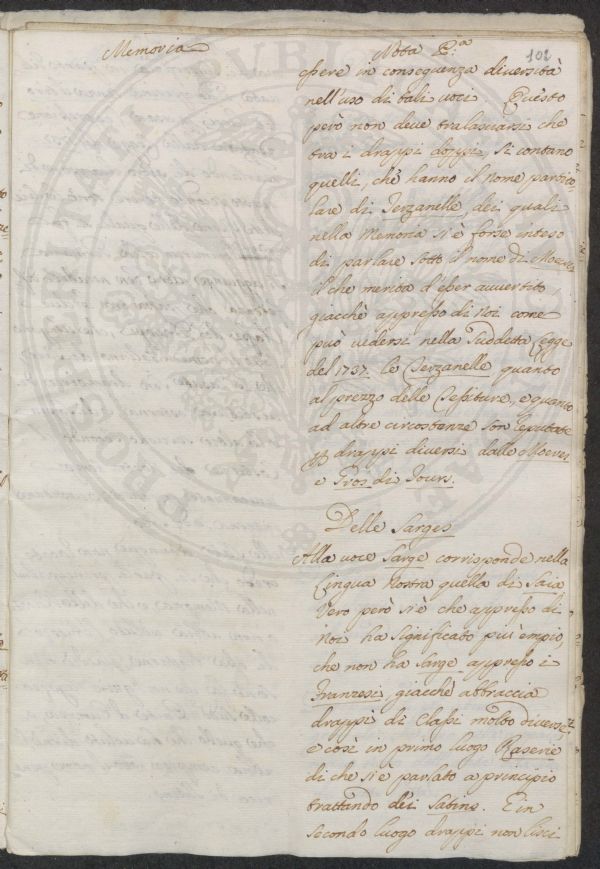 Memoria
Nota P.a
102
essere in conseguenza diversità
nell'uso di tali voci. Questo
però non deve tralasciarsi che
tra i drappi doppi, si contano
quelli, che hanno il nome partico,
lare di Terzanelle, dei quali
nella Memoria si è forse inteso
di parlare sotto il nome di Moever,
il che merita d'esser avvertito,
giacchè appresso di Noi come
può vedersi nella sudetta Legge
del 1737. le Terzanelle quanto
al prezzo delle Tessiture, e quanto
ad altre circostanze son reputate
drappi diversi dalle Moever
e Gros di Tours.
Delle Sarges
Alla voce Sarge corrisponde nella
Lingua Nostra quella di Saia
Vero però si è che appresso di
Noi ha significato più ampio,
che non ha Sarge appresso i
Franzesi, giacchè abbraccia
drappi di Classi molto diverse,
e così in primo luogo Raserie
di che si è parlato a principio
trattando dei Satins. E in
secondo luogo drappi non lisci